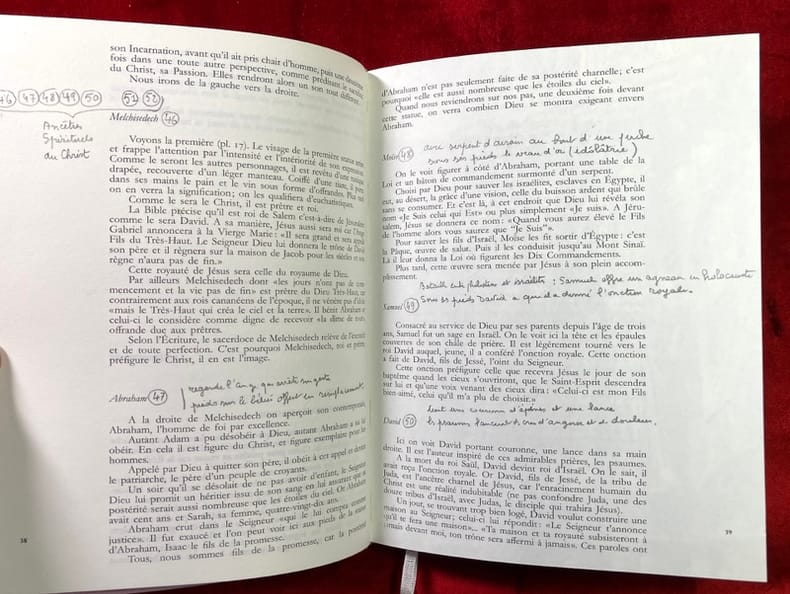 son Incarnation, avant qu'il ait pris chair d'homme, puis une deuxième
fois dans une toute autre perspective, comme préfigurant le
du Christ, sa Passion. Elles rendront alors un son tout différent.
Nous irons de la gauche vers la droite.
46 47 48 49 50 51 52
Ancêtres
Spirituels
du Christ
Melchisedech 46
Voyons la première (pl. 17). Le visage de la première statue attire
et frappe l'attention par l'intensité et l'intériorité de son expression.
Comme le seront les autres personnages, il est revêtu d'une tunique
drapée, recouverte d'un léger manteau. Coiffé d'une tiare, il porte
dans ses mains le pain et le vin sous forme d'offrandes. Plus tard
on en verra la signification; on les qualifiera d'eucharistiques.
Comme le sera le Christ, il est prêtre et roi.
La Bible précise qu'il est roi de Salem c'est-à-dire de Jérusalem
comme le sera David. A sa manière, Jésus aussi sera roi car l'Ange
Gabriel annoncera à la Vierge Marie: «Il sera grand et sera appelé
Fils du Très-Haut. Le Seigneur Dieu lui donnera le trône de David
son père et il règnera sur la maison de Jacob pour les siècles et son
règne n'aura pas de fin.»
Cette royauté de Jésus sera celle du royaume de Dieu.
Par ailleurs Melchisedech dont «les jours n'ont pas de com-
mencement et la vie pas de fin» est prêtre du Dieu Très-Haut, car
contrairement aux rois cananéens de l'époque, il ne vénère pas d'idole
«mais le Très-Haut qui créa le ciel et la terre». Il bénit Abraham et
celui-ci le considère comme digne de recevoir «la dîme de toute
offrande due aux prêtres.
Selon l'Écriture, le sacerdoce de Melchisedech relève de l'éternité
et de toute perfection. C'est pourquoi Melchisedech, roi et prêtre
préfigure le Christ, il en est l'image.
Abraham 47
regarde l'ange qui arrête son geste
pieds sur le bélier offert en remplacement
A la droite de Melchisedech on aperçoit son contemporain,
Abraham, l'homme de foi par excellence.
Autant Adam a pu désobéir à Dieu, autant Abraham a su lui
obéir. En cela il est figure du Christ, et figure exemplaire pour les
hommes.
Appelé par Dieu à quitter son père, il obéit à cet appel et devint
le patriarche, le père d'un peuple de croyants.
Un soir qu'il se désolait de ne pas avoir d'enfant, le Seigneur
Dieu lui promit un héritier issu de son sang en lui assurant que sa
postérité serait aussi nombreuse que les étoiles du ciel. Or Abraham
avait cent ans et Sarah, sa femme, quatre-vingt-dix ans.
Abraham crut dans le Seigneur «qui le lui compta comme
justice». Il fut exaucé et l'on peut voir ici aux pieds de la statue
d'Abraham, Isaac le fils de la promesse.
Tous, nous sommes fils de la promesse, car la postérité
38
d'Abraham n'est pas seulement faite de sa postérité charnelle; c'est
pourquoi «elle est aussi nombreuse que les étoiles du ciel».
Quand nous reviendrons sur nos pas, une deuxième fois devant
cette statue, on verra combien Dieu se montra exigeant envers
Abraham.
avec serpent d'airain au bout d'une perche
Moïse 48 sous ses pieds le veau d'or (idolâtrie)
On le voit figurer à côté d'Abraham, portant une table de la
Loi et un bâton de commandement surmonté d'un serpent.
Choisi par Dieu pour sauver les israélites, esclaves en Égypte, il
eut, au désert, la grâce d'une vision, celle du buisson ardent qui brûle
sans se consumer. Et c'est là, à cet endroit que Dieu lui révéla son
nom «Je Suis celui qui Est» ou plus simplement «Je suis». A Jéru-
salem, Jésus se donnera ce nom: «Quand vous aurez élevé le Fils
de l'homme alors vous saurez que "Je Suis"».
Pour sauver les fils d'Israël, Moïse les fit sortir d'Égypte: c'est
la Pâque, œuvre de salut. Puis il les conduisit jusqu'au Mont Sinaï.
Là il leur donna la Loi où figurent les Dix Commandements.
Plus tard, cette œuvre sera menée par Jésus à son plein accom-
plissement.
Bataille entre philistins et israélites : Samuel offre un agneau en holocauste
Samuel 49 Sous ses pieds David à qui il a donné l'onction royale.
Consacré au service de Dieu par ses parents depuis l'âge de trois
ans, Samuel fut un sage en Israël. On le voit ici la tête et les épaules
couvertes de son châle de prière. Il est légèrement tourné vers le
roi David auquel, jeune, il a conféré l'onction royale. Cette onction
a fait de David, fils de Jessé, l'oint du Seigneur.
Cette onction préfigure celle que recevra Jésus le jour de son
baptême quand les cieux s'ouvriront, que le Saint-Esprit descendra
sur lui et qu'une voix venant des cieux dira: «Celui-ci est mon Fils
bien-aimé, celui qu'il m'a plu de choisir.»
tient une couronne d'épines et une lance
David 50 d'angoisse et de douleur.
Ici on voit David portant couronne, une lance dans sa main
droite. Il est l'auteur inspiré de ces admirables prières, les psaumes.
A la mort du roi Saül, David devint roi d'Israël. On le sait, il
avait reçu l'onction royale. Or David, fils de Jessé, de la tribu de
Juda, est l'ancêtre charnel de Jésus, car l'enracinement humain du
Christ est une réalité indubitable (ne pas confondre Juda, une des
douze tribus d'Israël, avec Judas, le disciple qui trahira Jésus).
Un jour, se trouvant trop bien logé, David voulut construire une
maison au Seigneur; celui-ci lui répondit: «Le Seigneur t'annonce
qu'il te fera une maison»... «Ta maison et ta royauté subsisteront à
jamais devant moi, ton trône sera affermi à jamais». Ces paroles ont
39